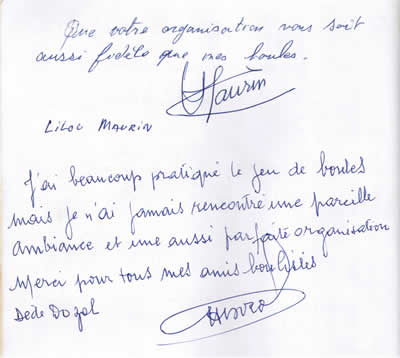 Que votre organisation vous soit
aussi fidèle que mes boules.
Maurin
LiLOU MAURIN
J'ai beaucoup pratiqué le jeu de boules
mais je n'ai jamais rencontré une pareille
ambiance et une aussi parfaite organisation
Merci pour tous mes amis boulistes
Dédé